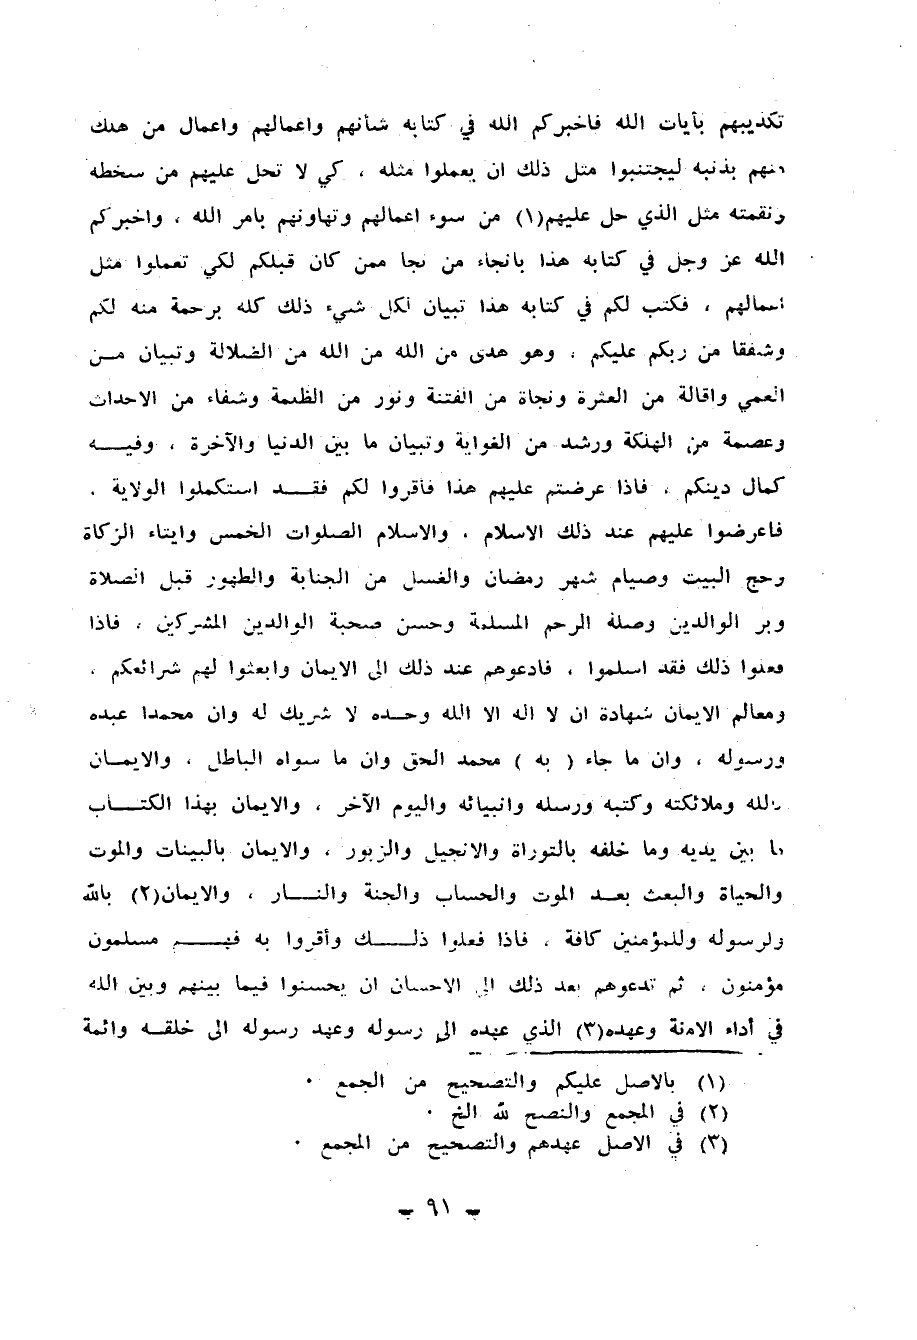 تكذيبهم بأيات الله فاخبركم الله في كتابه شأنهم واعمالهم واعمال من هلك
منهم بذنبه ليجتنبوا مثل ذلك ان يعملوا مثله ، كي لا تحل عليهم من سخطه
ونقمته مثل الذي حل عليهم(١) من سوء اعمالهم وتهاونهم بامر الله ، واخبركم
الله عز وجل في كتابه هذا بانجاء من نجا ممن كان قبلكم لكي تعملوا مثل
اعمالهم ، فكتب لكم في كتابه هذا تبيان لكل شيء ذلك كله برحمة منه لكم
وشفقا من ربكم عليكم ، وهو هدى من الله من الله من الضلالة وتبيان مـن
العمي واقالة من العثرة ونجاة من الفتنة ونور من الظلمة وشفاء من الاحداث
وعصمة من الهلكة ورشد من الغواية وتبيان ما بين الدنيا والآخرة ، وفيـــه
كمال دينكم ، فاذا عرضتم عليهم هذا فأقروا لكم فقـــد استكملوا الولاية .
فاعرضوا عليهم عند ذلك الاسلام ، والاسلام الصلوات الخمس وايتاء الزكاة
وحج البيت وصيام شهر رمضان والغسل من الجنابة والطهور قبل الصلاة
وبر الوالدين وصلة الرحم المسلمة وحسن صحبة الوالدين المشركين ، فاذا
فعلوا ذلك فقد اسلموا ، فادعوهم عند ذلك الى الايمان وابعثوا لهم شرائعكم .
ومعالم الايمان شهادة ان لا اله الا الله وحــده لا شريك له وان محمدا عبده
ورسوله ، وان ما جاء ( به ) محمد الحق وان ما سواه الباطل ، والايمــان
بالله وملائكته وكتبه ورسله وانبيائه واليوم الآخر ، والايمان بهذا الكتـــاب
ما بين يديه وما خلفه بالتوراة والانجيل والزبور ، والايمان بالبينات والموت
والحياة والبعث بعــد الموت والحساب والجنة والنـــار ، والايمان(٢) بالله
ولرسوله وللمؤمنين كافة ، فاذا فعلوا ذلـــك وأقروا به فهـــم مسلمون
مؤمنون ، ثم تدعوهم بعد ذلك الى الاحسان ان يحسنوا فيما بينهم وبين الله
في أداء الامنة وعهده(٣) الذي عهده الى رسوله وعهد رسوله الى خلقــه وائمة
(١) بالاصل عليكم والتصحيح من الجمع .
(٢) في المجمع والنصح لله الخ .
(٣) في الاصل عهدهم والتصحيح من المجمع .
- ٩١ -